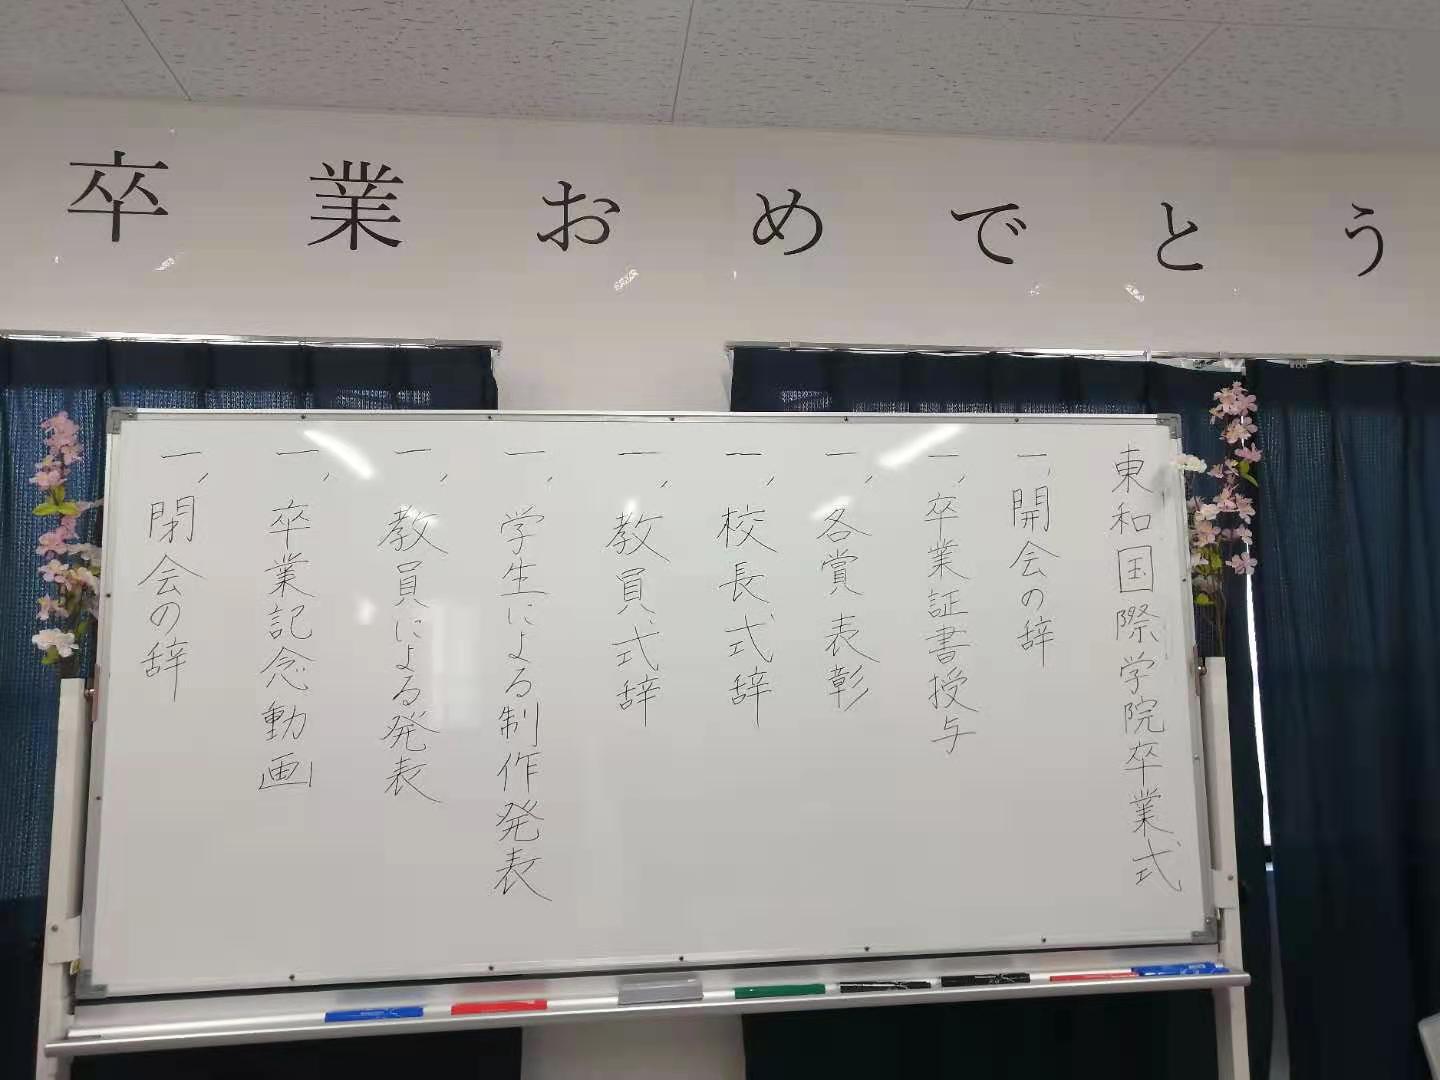 卒業おめでとう
東和国際学院卒業式
一、開会の辞
一、卒業証書授与
一、各賞表彰
一、校長式辞
一、教員式辞
一、学生による制作発表
一、教員による発表
一、卒業記念動画
一、閉会の辞